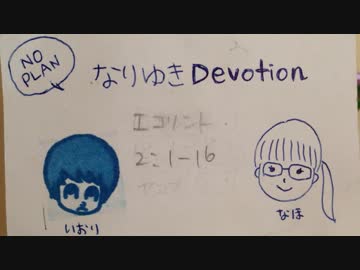 NO
PLAN
なりゆきDevotion
Iコリント
2:1-16
いおり
なほ